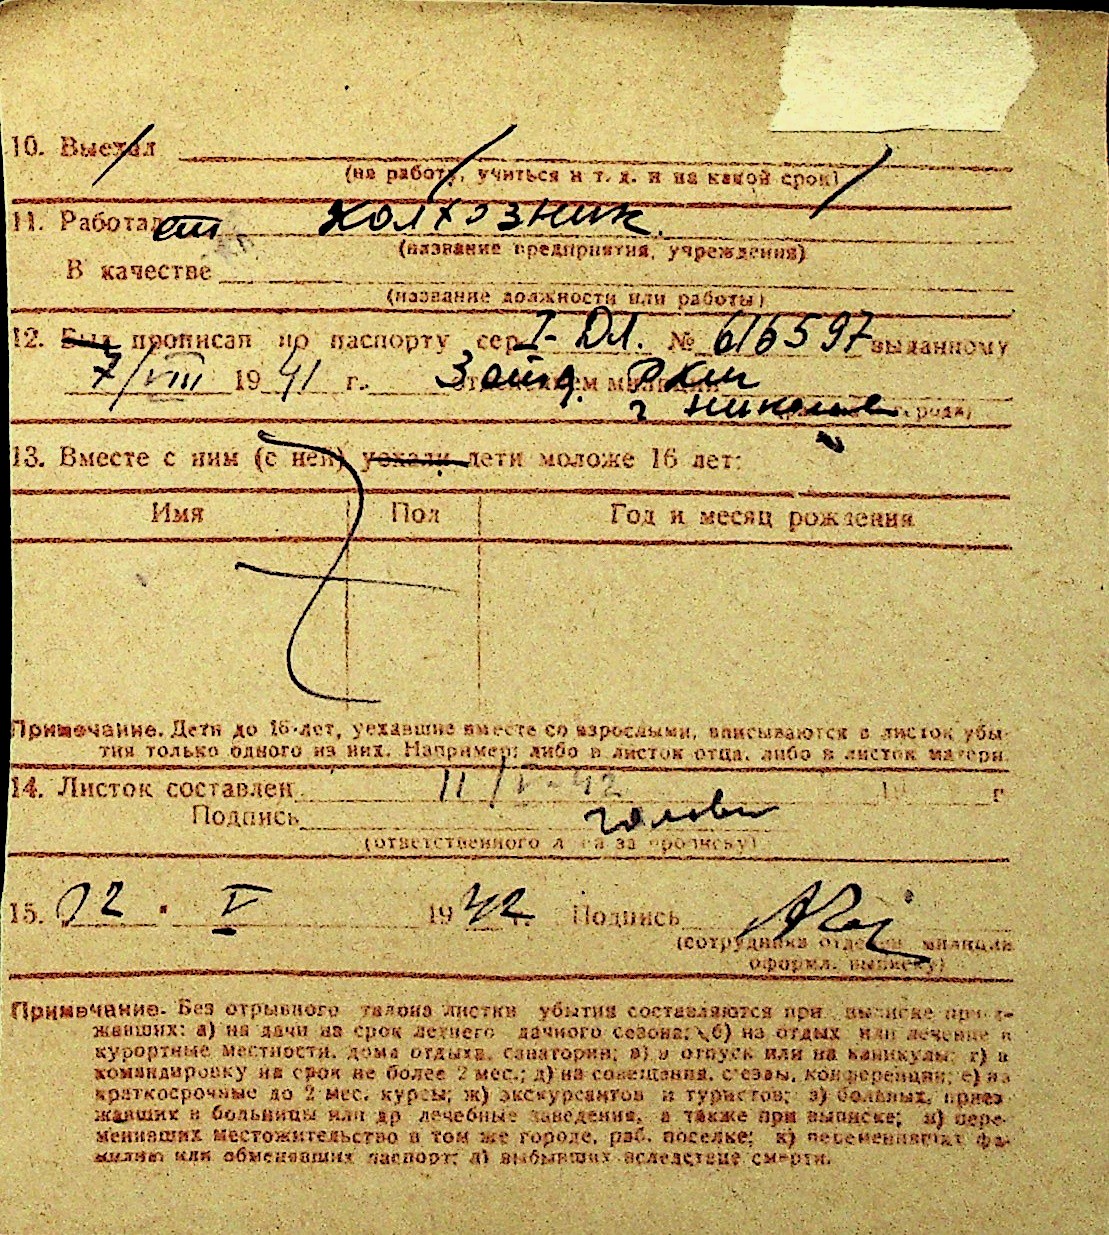 10. Выехал
(на работу, учиться и т. д. и на какой срок)
11. Работал колхозник.
(название предприятия, учреждения)
В качестве
(название должности или работы)
12. Был прописан по паспорту сер. I-ДЛ. № 616597 выданному
7/VIII 1941 г. 3 отд. РКМ
г Николаев города)
13. Вместе с ним (с ней) уехали дети моложе 16 лет:
Имя Пол Год и месяц рождения
Примечание. Дети до 16 лет, уехавшие вместе со взрослыми, вписываются в листок убы-
тия только одного из них. Например: либо в листок отца, либо в листок матери.
14. Листок составлен 11/V-42 19 г
Подпись
(ответственного лица за прописку)
15. 12 V 1942 г. Подпись
(сотрудника отделен. милиции
оформл. выписку)
Примечание. Без отрывного талона листки убытия составляются при выписке приез-
жавших: а) на дачи на срок летнего дачного сезона; б) на отдых или лечение в
курортные местности, дома отдыха, санатории; в) в отпуск или на каникулы; г) в
командировку на срок не более 2 мес.; д) на совещания, с'езды, конференции; е) на
краткосрочные до 2 мес. курсы; ж) экскурсантов и туристов; з) больных, приез-
жавших в больницы или др лечебные заведения, а также при выписке; и) пере-
менивших местожительство в том же городе, раб. поселке; к) переменивших фа-
милию или обменявших паспорт; л) выбывших вследствие смерти.